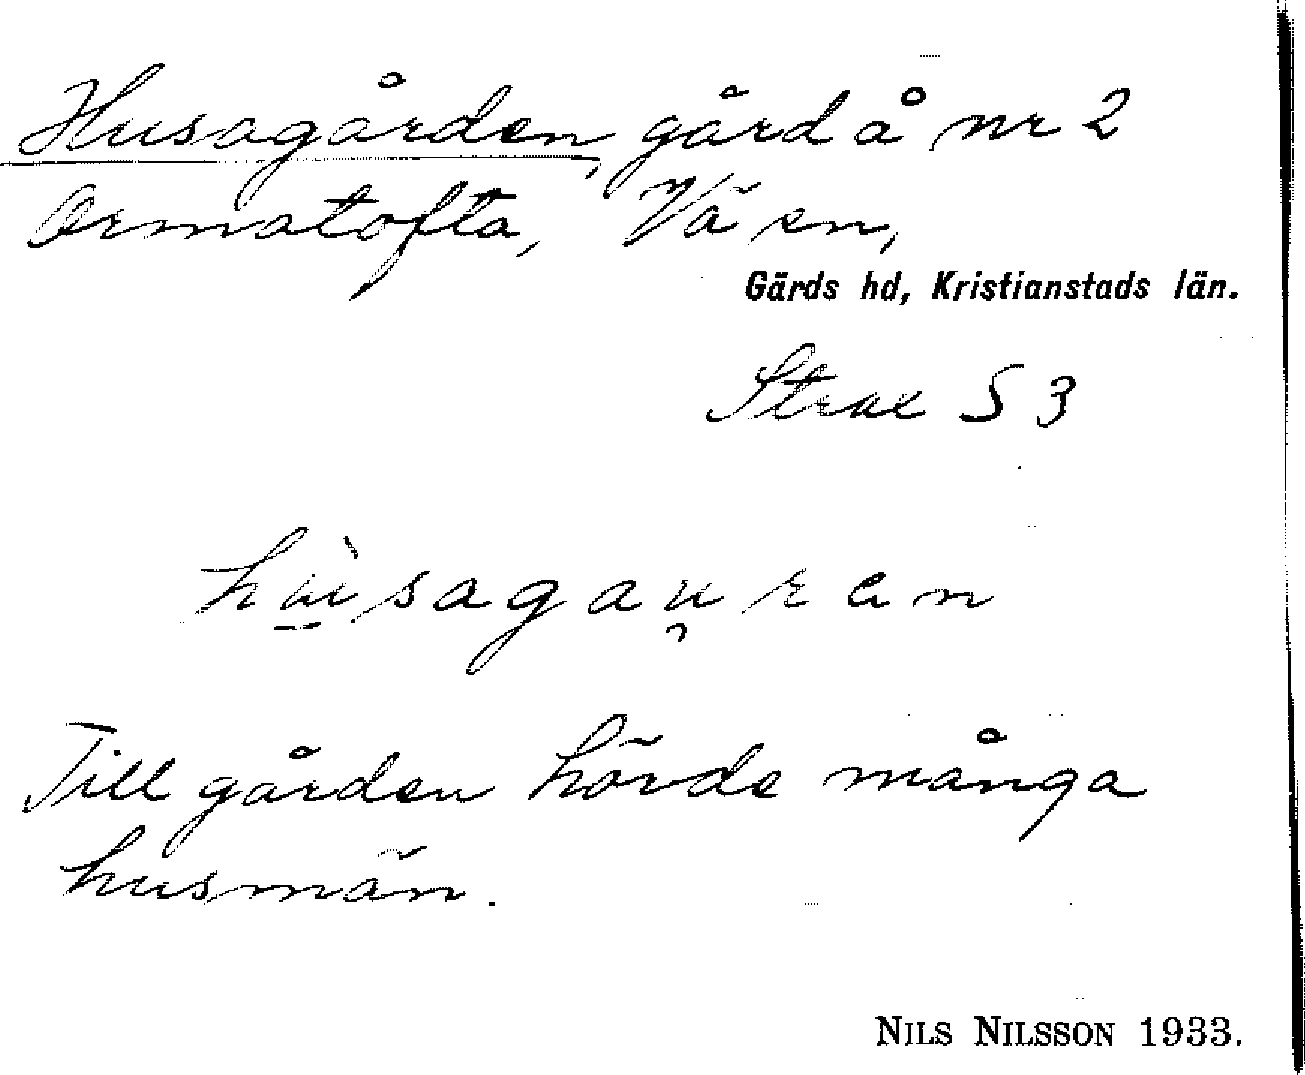 Husagården, gård å nr 2
Ormatofta, Vä sn,
Gärds hd, Kristianstads län.
Strax S 3
hu̱ìsagau̯ran
Till gården hörde många
husmän.
NILS NILSSON 1933.